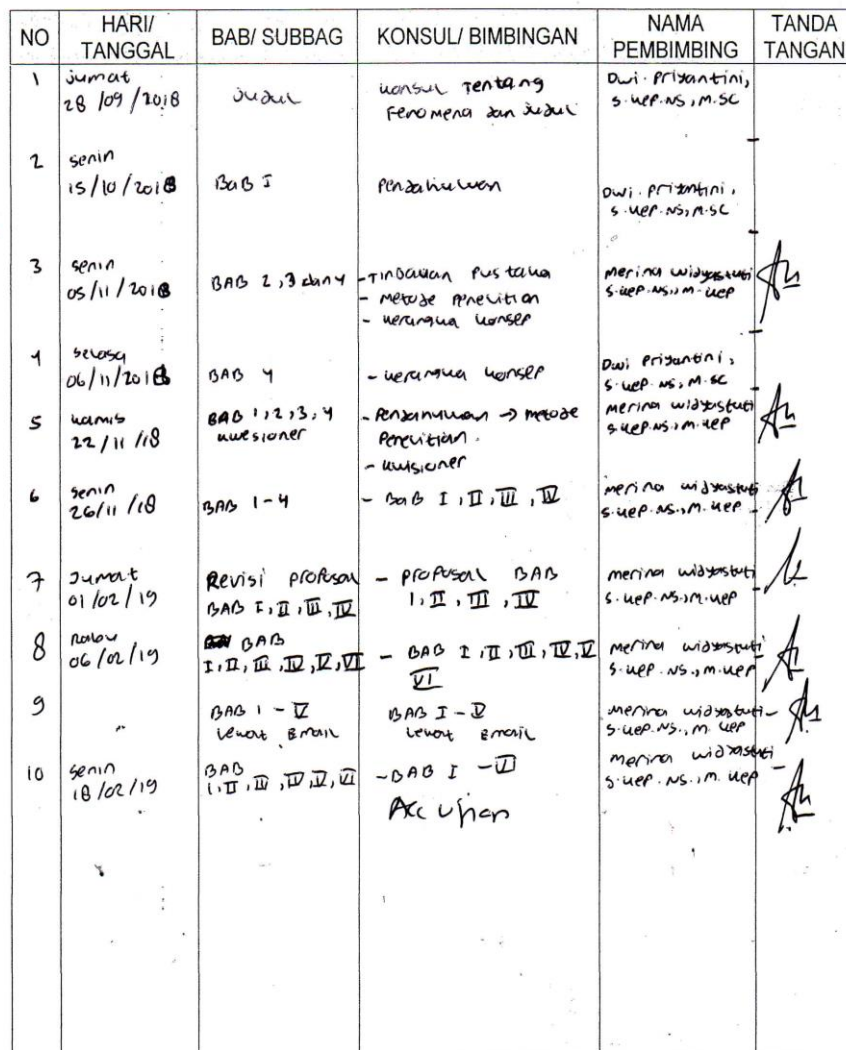 NO HARI/ TANGGAL BAB/ SUBBAG KONSUL/ BIMBINGAN NAMA PEMBIMBING TANDA TANGAN
1 Jumat 28/09/2018 Judul Konsul Tentang Fenomena dan Judul Dwi Priyantini, S.Kep.Ns, M.SC
2 Senin 15/10/2018 BAB I Pendahuluan Dwi Priyantini, S.Kep.Ns, M.SC
3 Senin 05/11/2018 BAB 2,3 dan 4 - Tinjauan Pustaka - Metode Penelitian - Kerangka Konsep Merina Widyastuti S.Kep.Ns., M.Kep
4 Selasa 06/11/2018 BAB 4 - Kerangka Konsep Dwi Priyantini, S.Kep.Ns, M.SC
5 Kamis 22/11/18 BAB 1,2,3,4 Kuesioner - Pendahuluan → Metode Penelitian. - Kuisioner Merina Widyastuti S.Kep.Ns., M.Kep
6 Senin 26/11/18 BAB 1-4 - BAB I, II, III, IV Merina Widyastuti S.Kep.Ns., M.Kep
7 Jumat 01/02/19 Revisi Proposal BAB I, II, III, IV - Proposal BAB I, II, III, IV Merina Widyastuti S.Kep.Ns., M.Kep
8 Rabu 06/02/19 BAB I, II, III, IV, V, VI - BAB I, II, III, IV, V VI Merina Widyastuti S.Kep.Ns., M.Kep
9 BAB 1 - V Lewat Email BAB I - V Lewat Email Merina Widyastuti S.Kep.Ns., M.Kep
10 Senin 18/02/19 BAB 1, II, III, IV, V, VI - BAB I - VI Acc Ujian Merina Widyastuti S.Kep.Ns., M.Kep